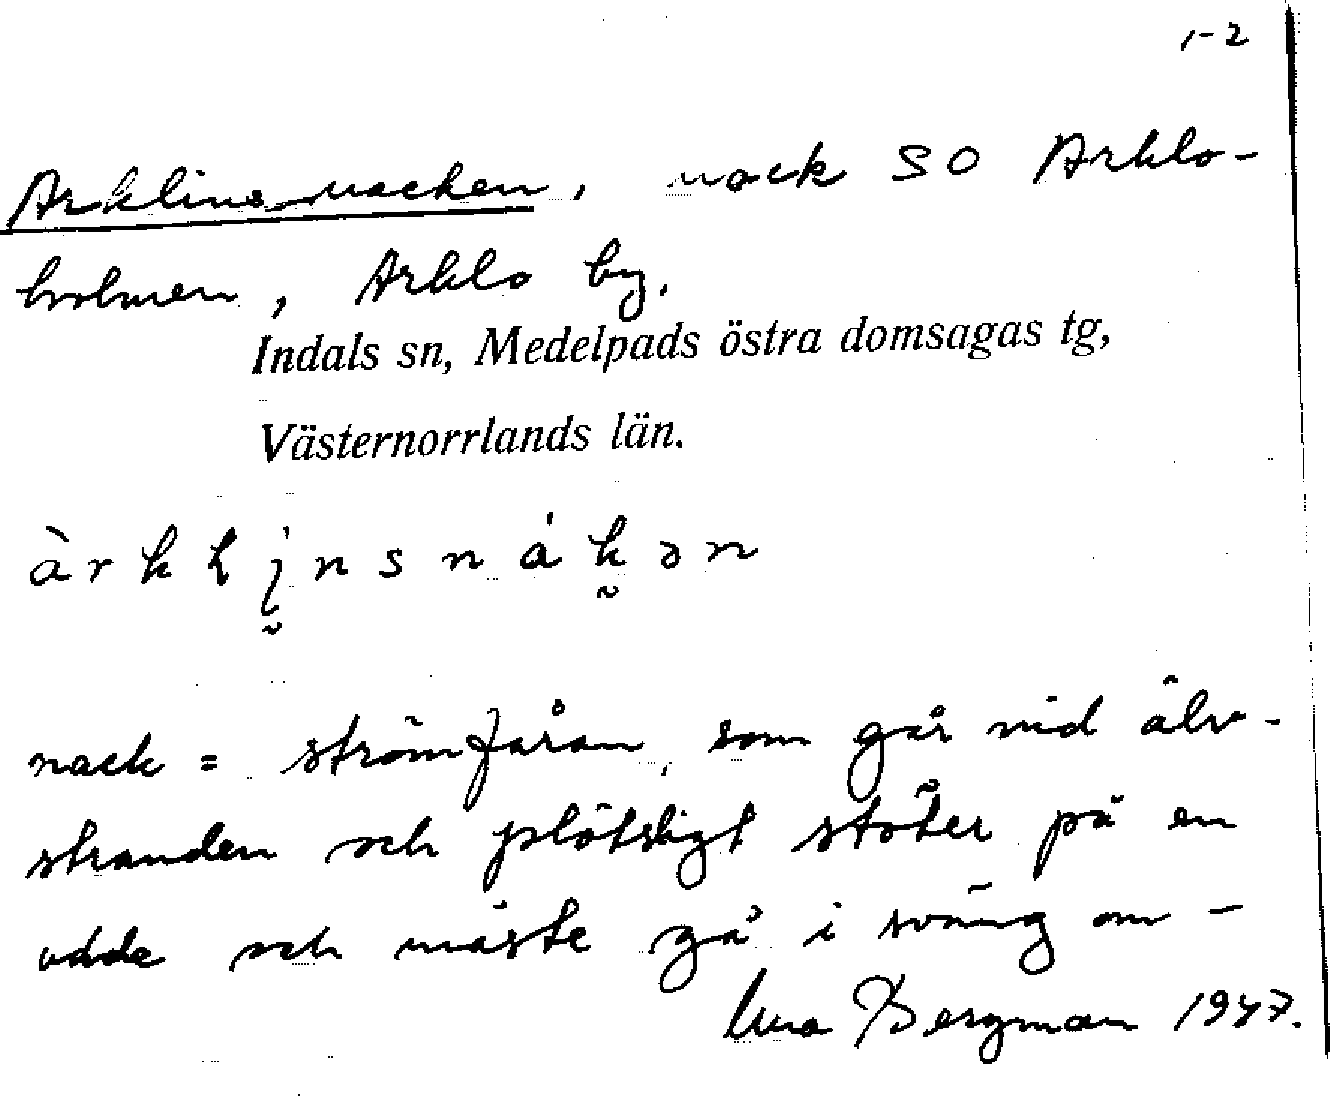 1-2
Arklinsnacken, nack SO Arklo-
holmen, Arklo by.
Indals sn, Medelpads östra domsagas tg,
Västernorrlands län.
nack = strömfåran, som går vid älv-
stranden och plötsligt stöter på en
udde och måste gå i sväng om -
Bergman 1947.